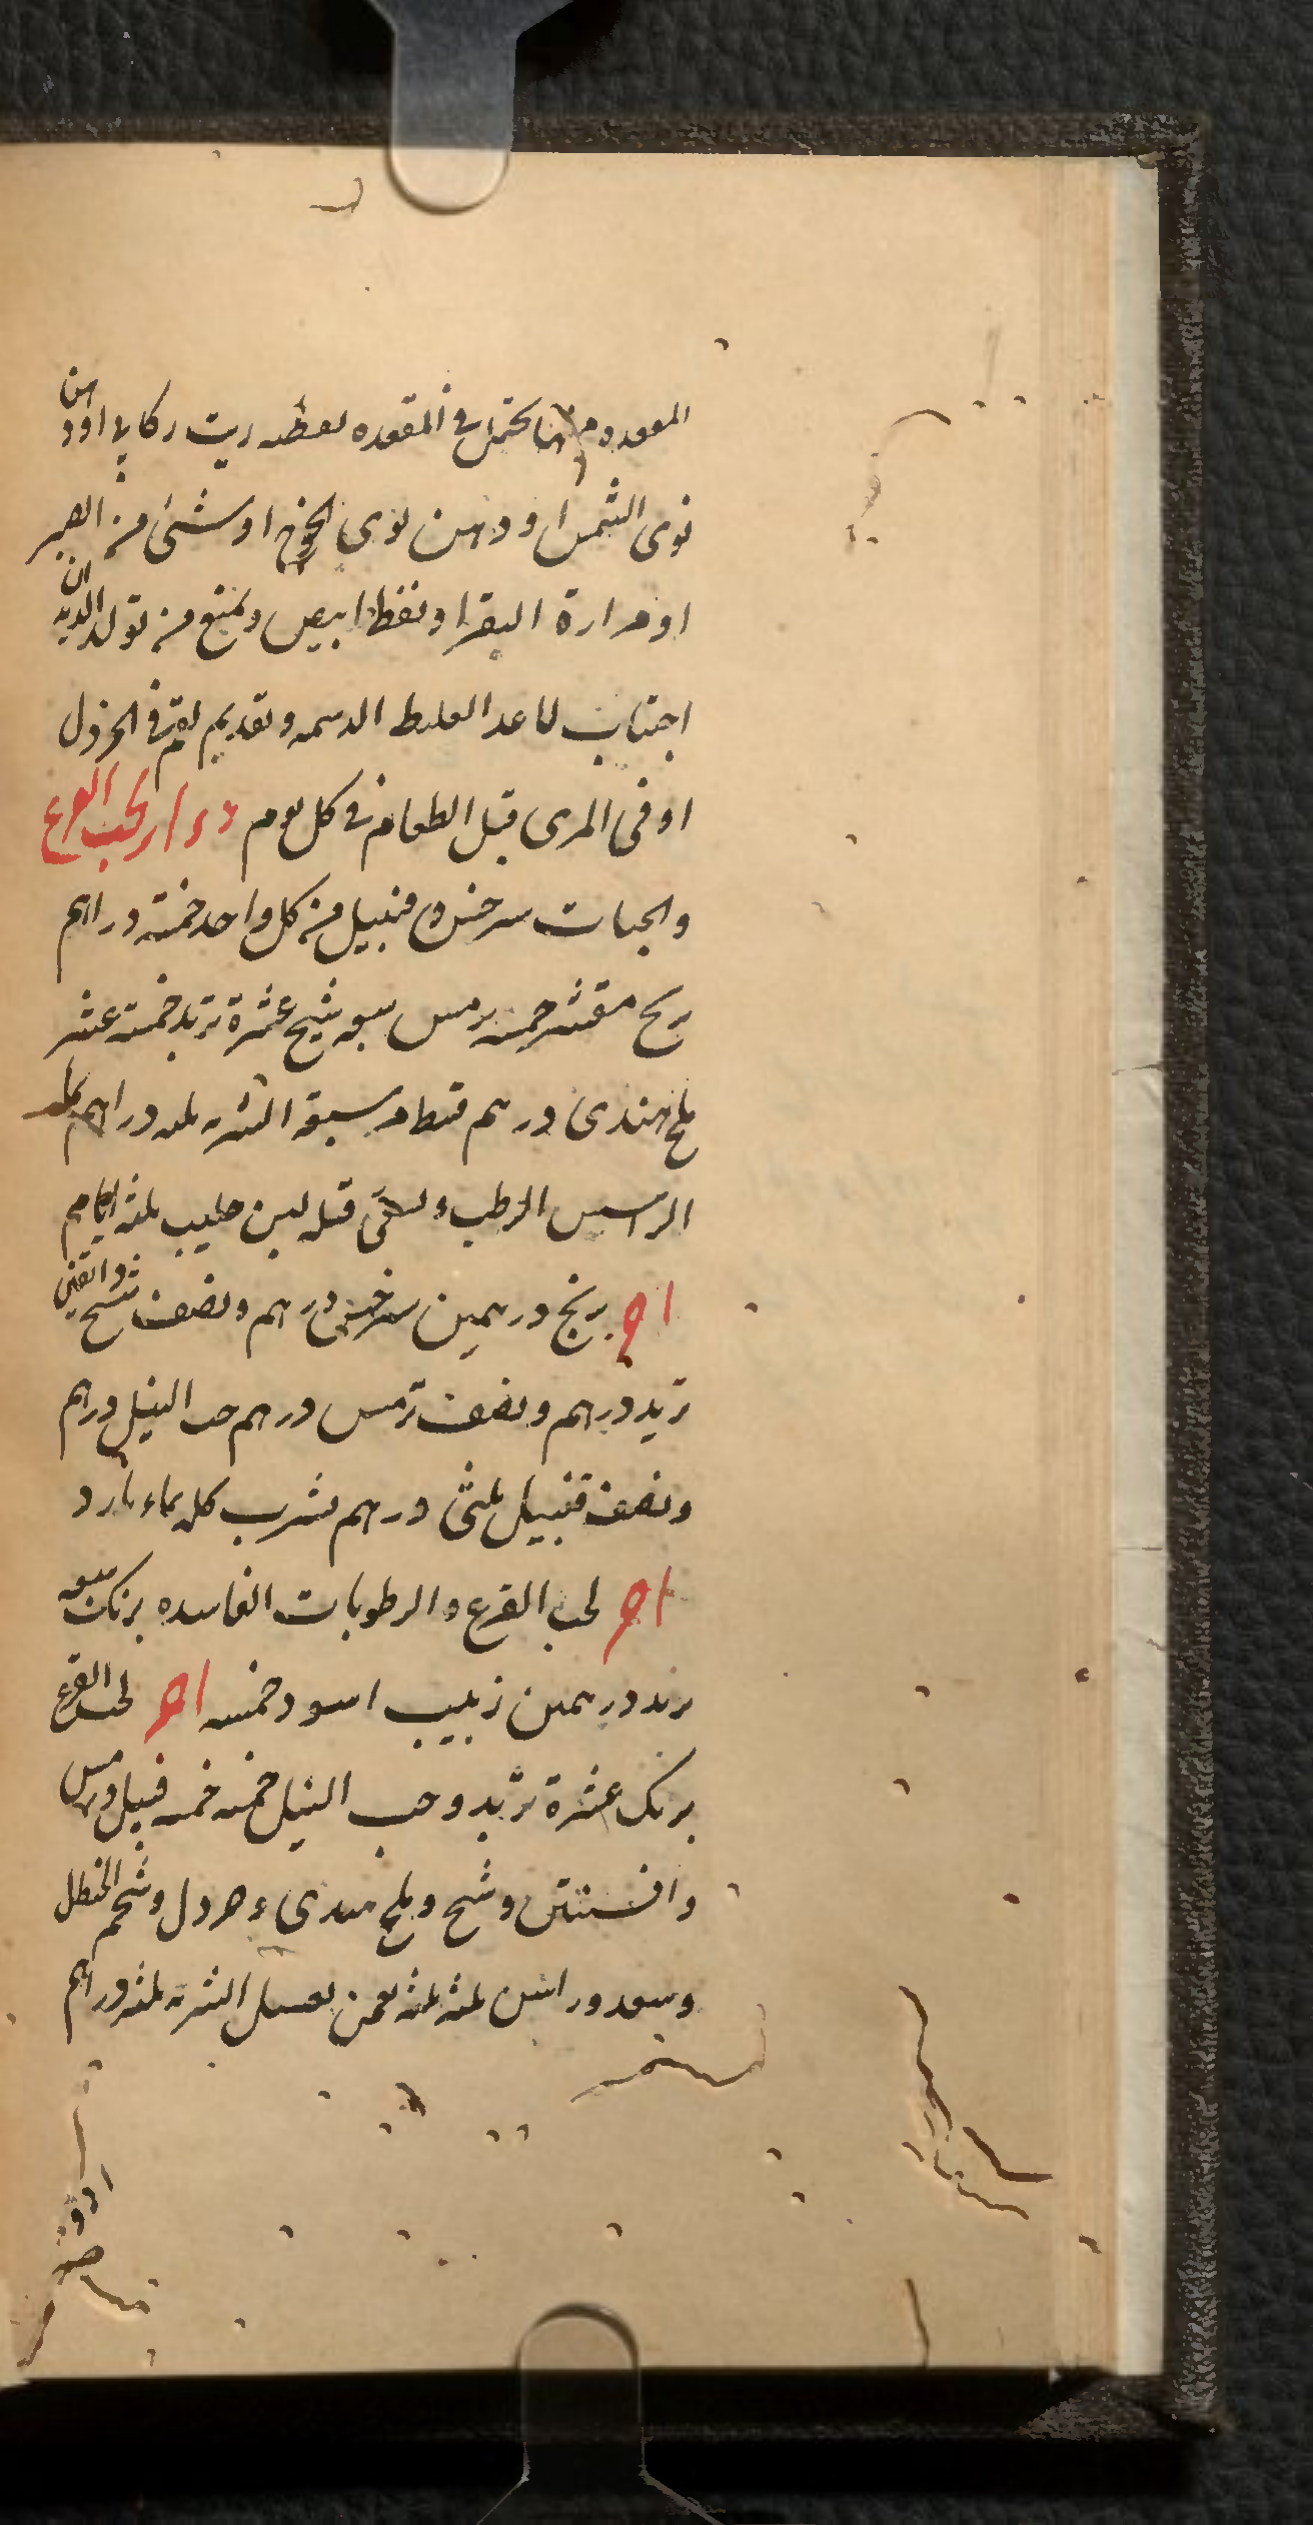 المعوده مما يحتمل في المقعده لعطه زيت ركابي او دهن
نوى المشمش او دهن نوى الخوخ او شئ من الصبر
او مرارة البقر او نفط ابيض ويمنع من تولد الديدان
اجتناب الغليظ الدسمه وتقديم لقم في الخردل
او في المرى قبل الطعام في كل يوم دواء لحب القرع
والحيات سرخس وقنبيل من كل واحد خمسة دراهم
برنج مقشر خمسه ترمس سبعه شيح عشرة تربد خمسة عشر
ملح هندى درهم قسط مر سبعة الشربه ثلثه دراهم بماء
الراسن الرطب ويسقى قبله لبن حليب ثلثه ايام
اخر برنج درهمين سرخس درهم ونصف شيح دانقين
تربد درهم ونصف ترمس درهم حب النيل درهم
ونصف قنبيل ثلثى درهم يشرب كله بماء بارد
اخر لحب القرع والرطوبات الفاسده برنك سبعه
تربد درهمين زبيب اسود خمسه اخر لحب القرع
برنك عشرة تربد وحب النيل خمسه خمسه قنبيل وترمس
وافسنتين وشيح وملح هندى وخردل وشحم الحنظل
وسعد وراسن ثلثه ثلثه يعجن بعسل الشربه ثلثه دراهم